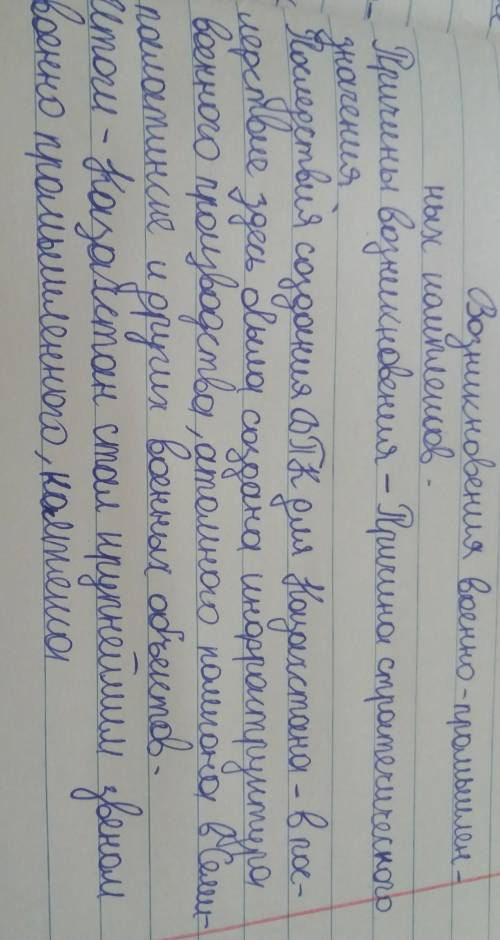 Возникновения военно-промышлен-
ных комплексов.
Причины возникновения - Причина стратегического
значения
Последствия создания ВПК для Казахстана - в пос-
ледствие здесь была создана инфраструктура
военного производства, атомного полигона в Семи-
палатинске и других военных объектов.
Итоги - Казахстан стал крупнейшим звеном
военно промышленного, комплекса